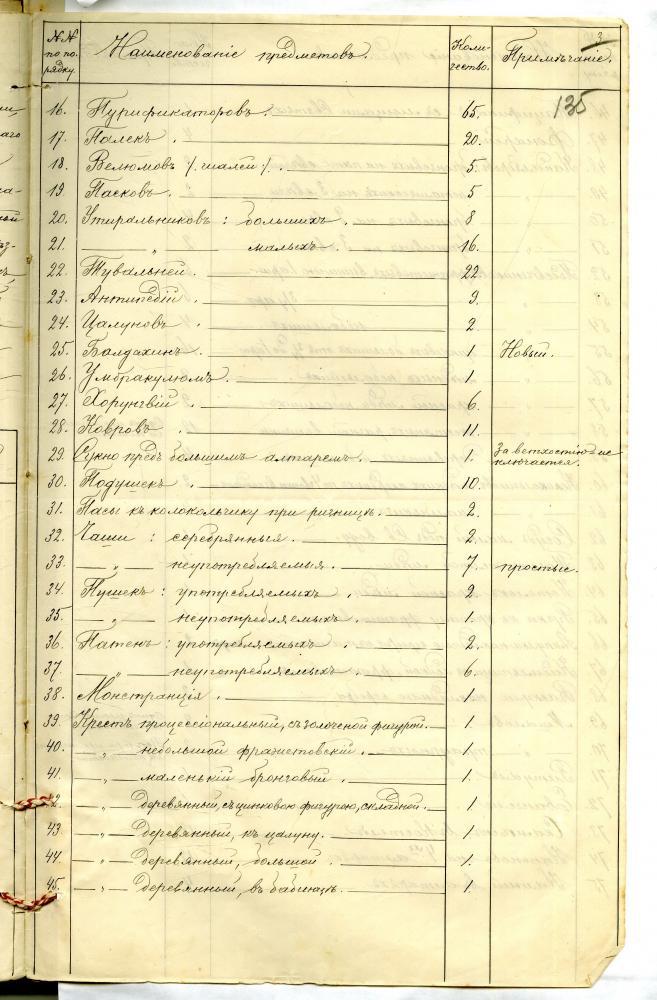 3
135
№№ по порядку. Наименованіе предметовъ. Количество. Примѣчаніе.
16. Пурификаторовъ. 65.
17. Палекъ. 20.
18. Велюмовъ /: шалей :/. 5.
19. Пасковъ. 5
20. Утиральниковъ: большихъ. 8
21. — „ — малыхъ. 16.
22. Тувальней. 22.
23. Антипедій. 9.
24. Цалуновъ. 2.
25. Балдахинъ. 1. Новый.
26. Умбракулюмъ. 1.
27. Хорунгвій. 6.
28. Ковровъ. 11.
29. Сукно предъ большимъ алтаремъ. 1. За ветхостію исключается.
30. Подушекъ. 10.
31. Пасы къ колокольчику при ризницѣ. 2.
32. Чаши: серебрянныя. 2.
33. — „ — неупотребляемыя. 7. простые.
34. Пушекъ: употребляемыхъ. 2.
35. — „ — неупотребляемыхъ. 1.
36. Патенъ: употребляемыхъ. 2.
37. — „ — неупотребляемыхъ. 6.
38. Монстранція. 1.
39. Крестъ процессіональный, съ золоченой фигурой. 1.
40. — „ — небольшой фражетовскій. 1.
41. — „ — маленькій бронзовый. 1.
42. — „ — деревянный, съ цинковою фигурою, складной. 1.
43. — „ — деревянный, къ цалуну. 1.
44. — „ — деревянный, большой. 1.
45. — „ — деревянный, въ бабинцѣ. 1.